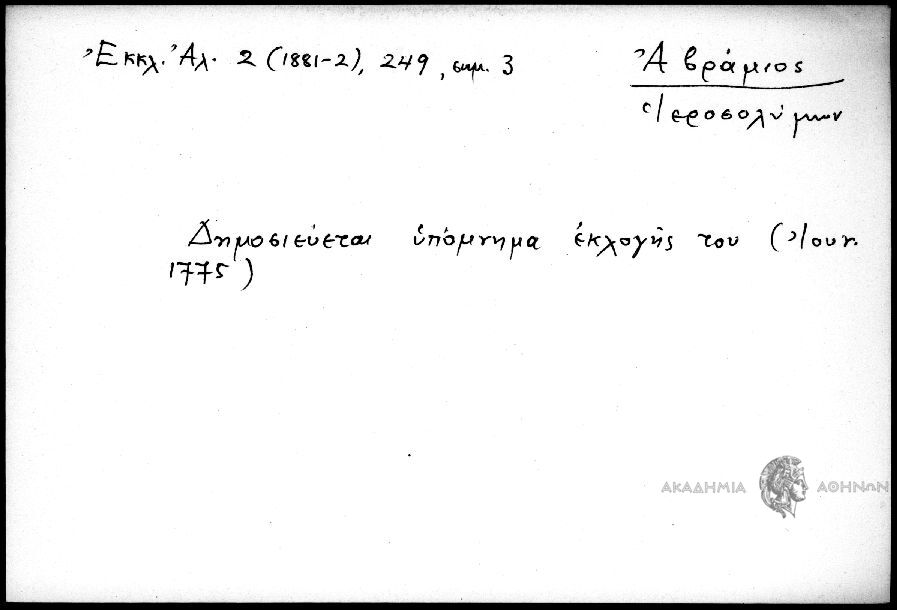 Ἐκκλ. Ἀλ. 2 (1881-2), 249, σημ. 3
Ἀβράμιος
Ἱεροσολύμων
Δημοσιεύεται ὑπόμνημα ἐκλογῆς του (Ἰουν.
1775)
ΑΚΑΔΗΜΙΑ ΑΘΗΝΩΝ